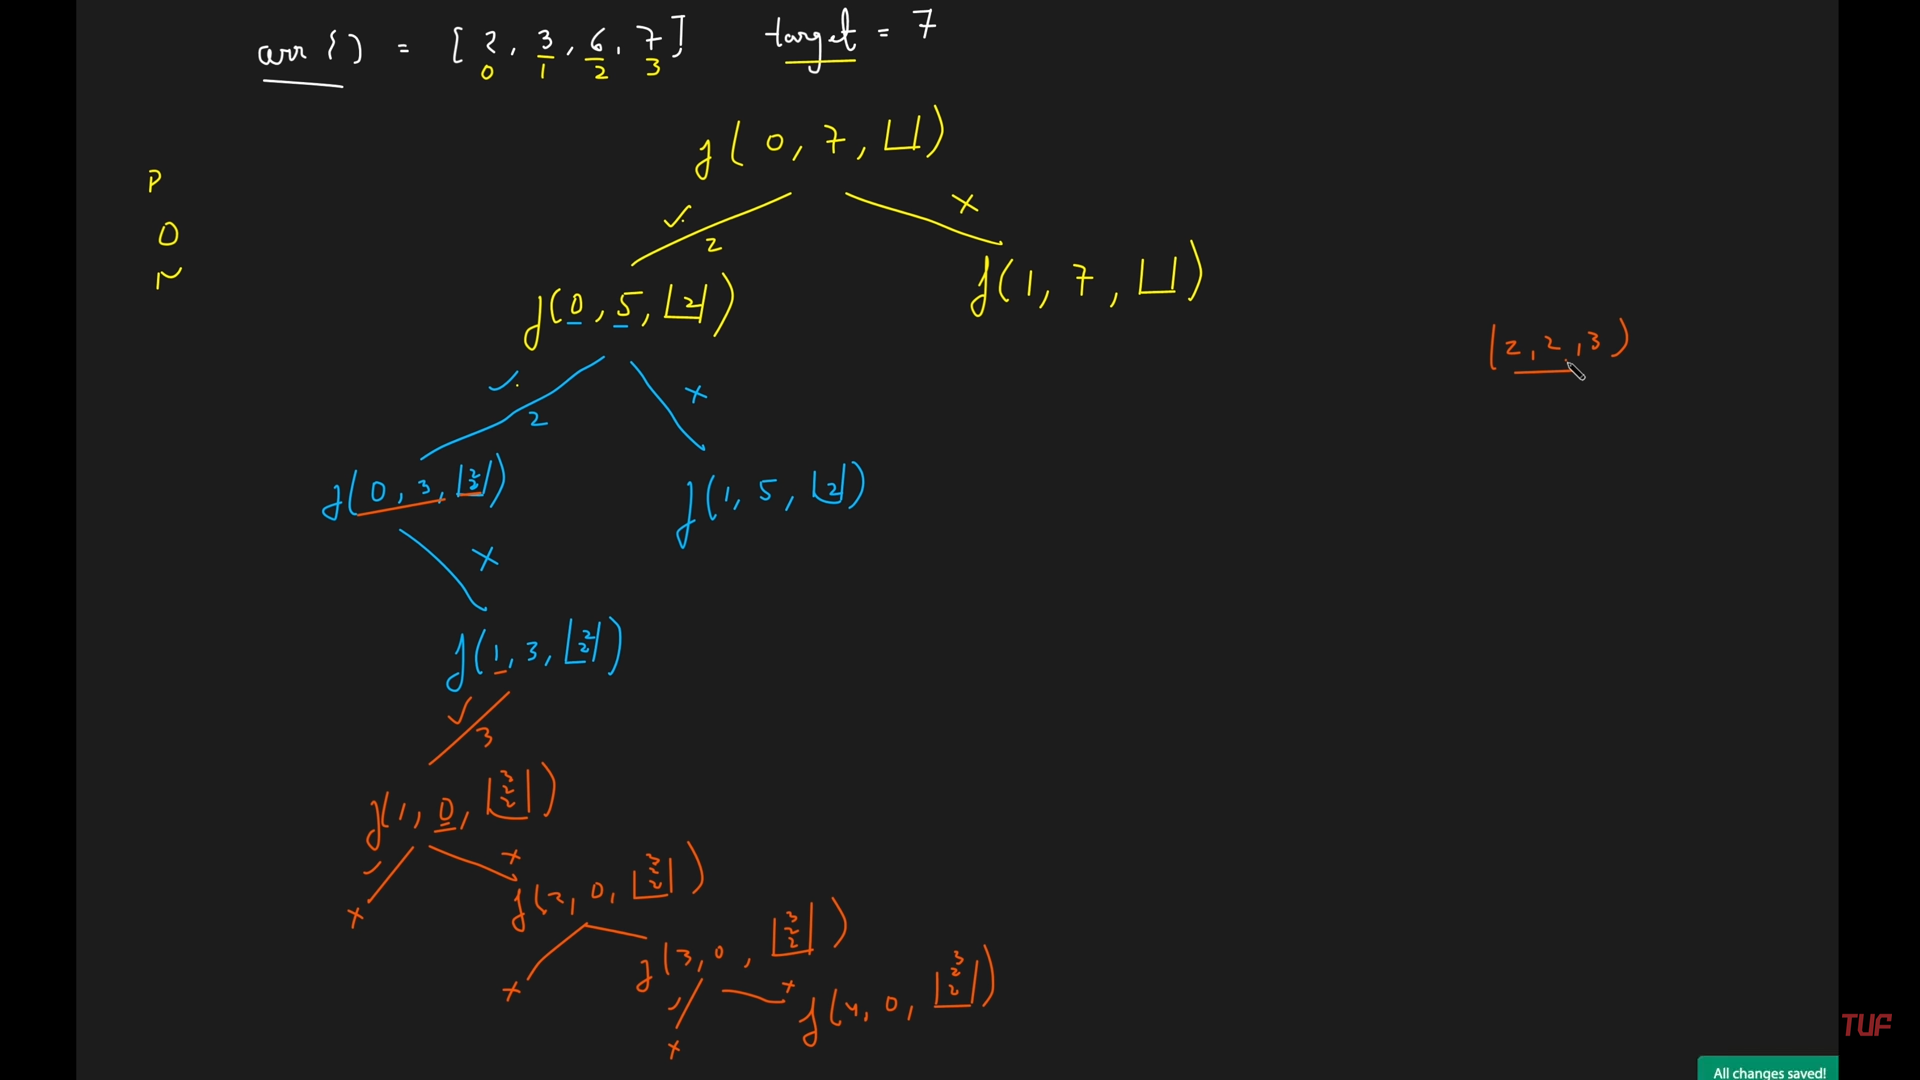 arr[] = [2, 3, 6, 7] target = 7
0 1 2 3
f(0, 7, [])
P
✓ 2 ×
O
N
f(1, 7, [])
f(0, 5, [2])
(2, 2, 3)
✓ 2 ×
f(0, 3, [2 2])
f(1, 5, [2])
×
f(1, 3, [2 2])
✓ 3
f(1, 0, [3 2 2])
✓ ×
× f(2, 0, [3 2 2])
f(3, 0, [3 2 2])
× ✓ × f(4, 0, [3 2 2])
×
TUF
All changes saved!